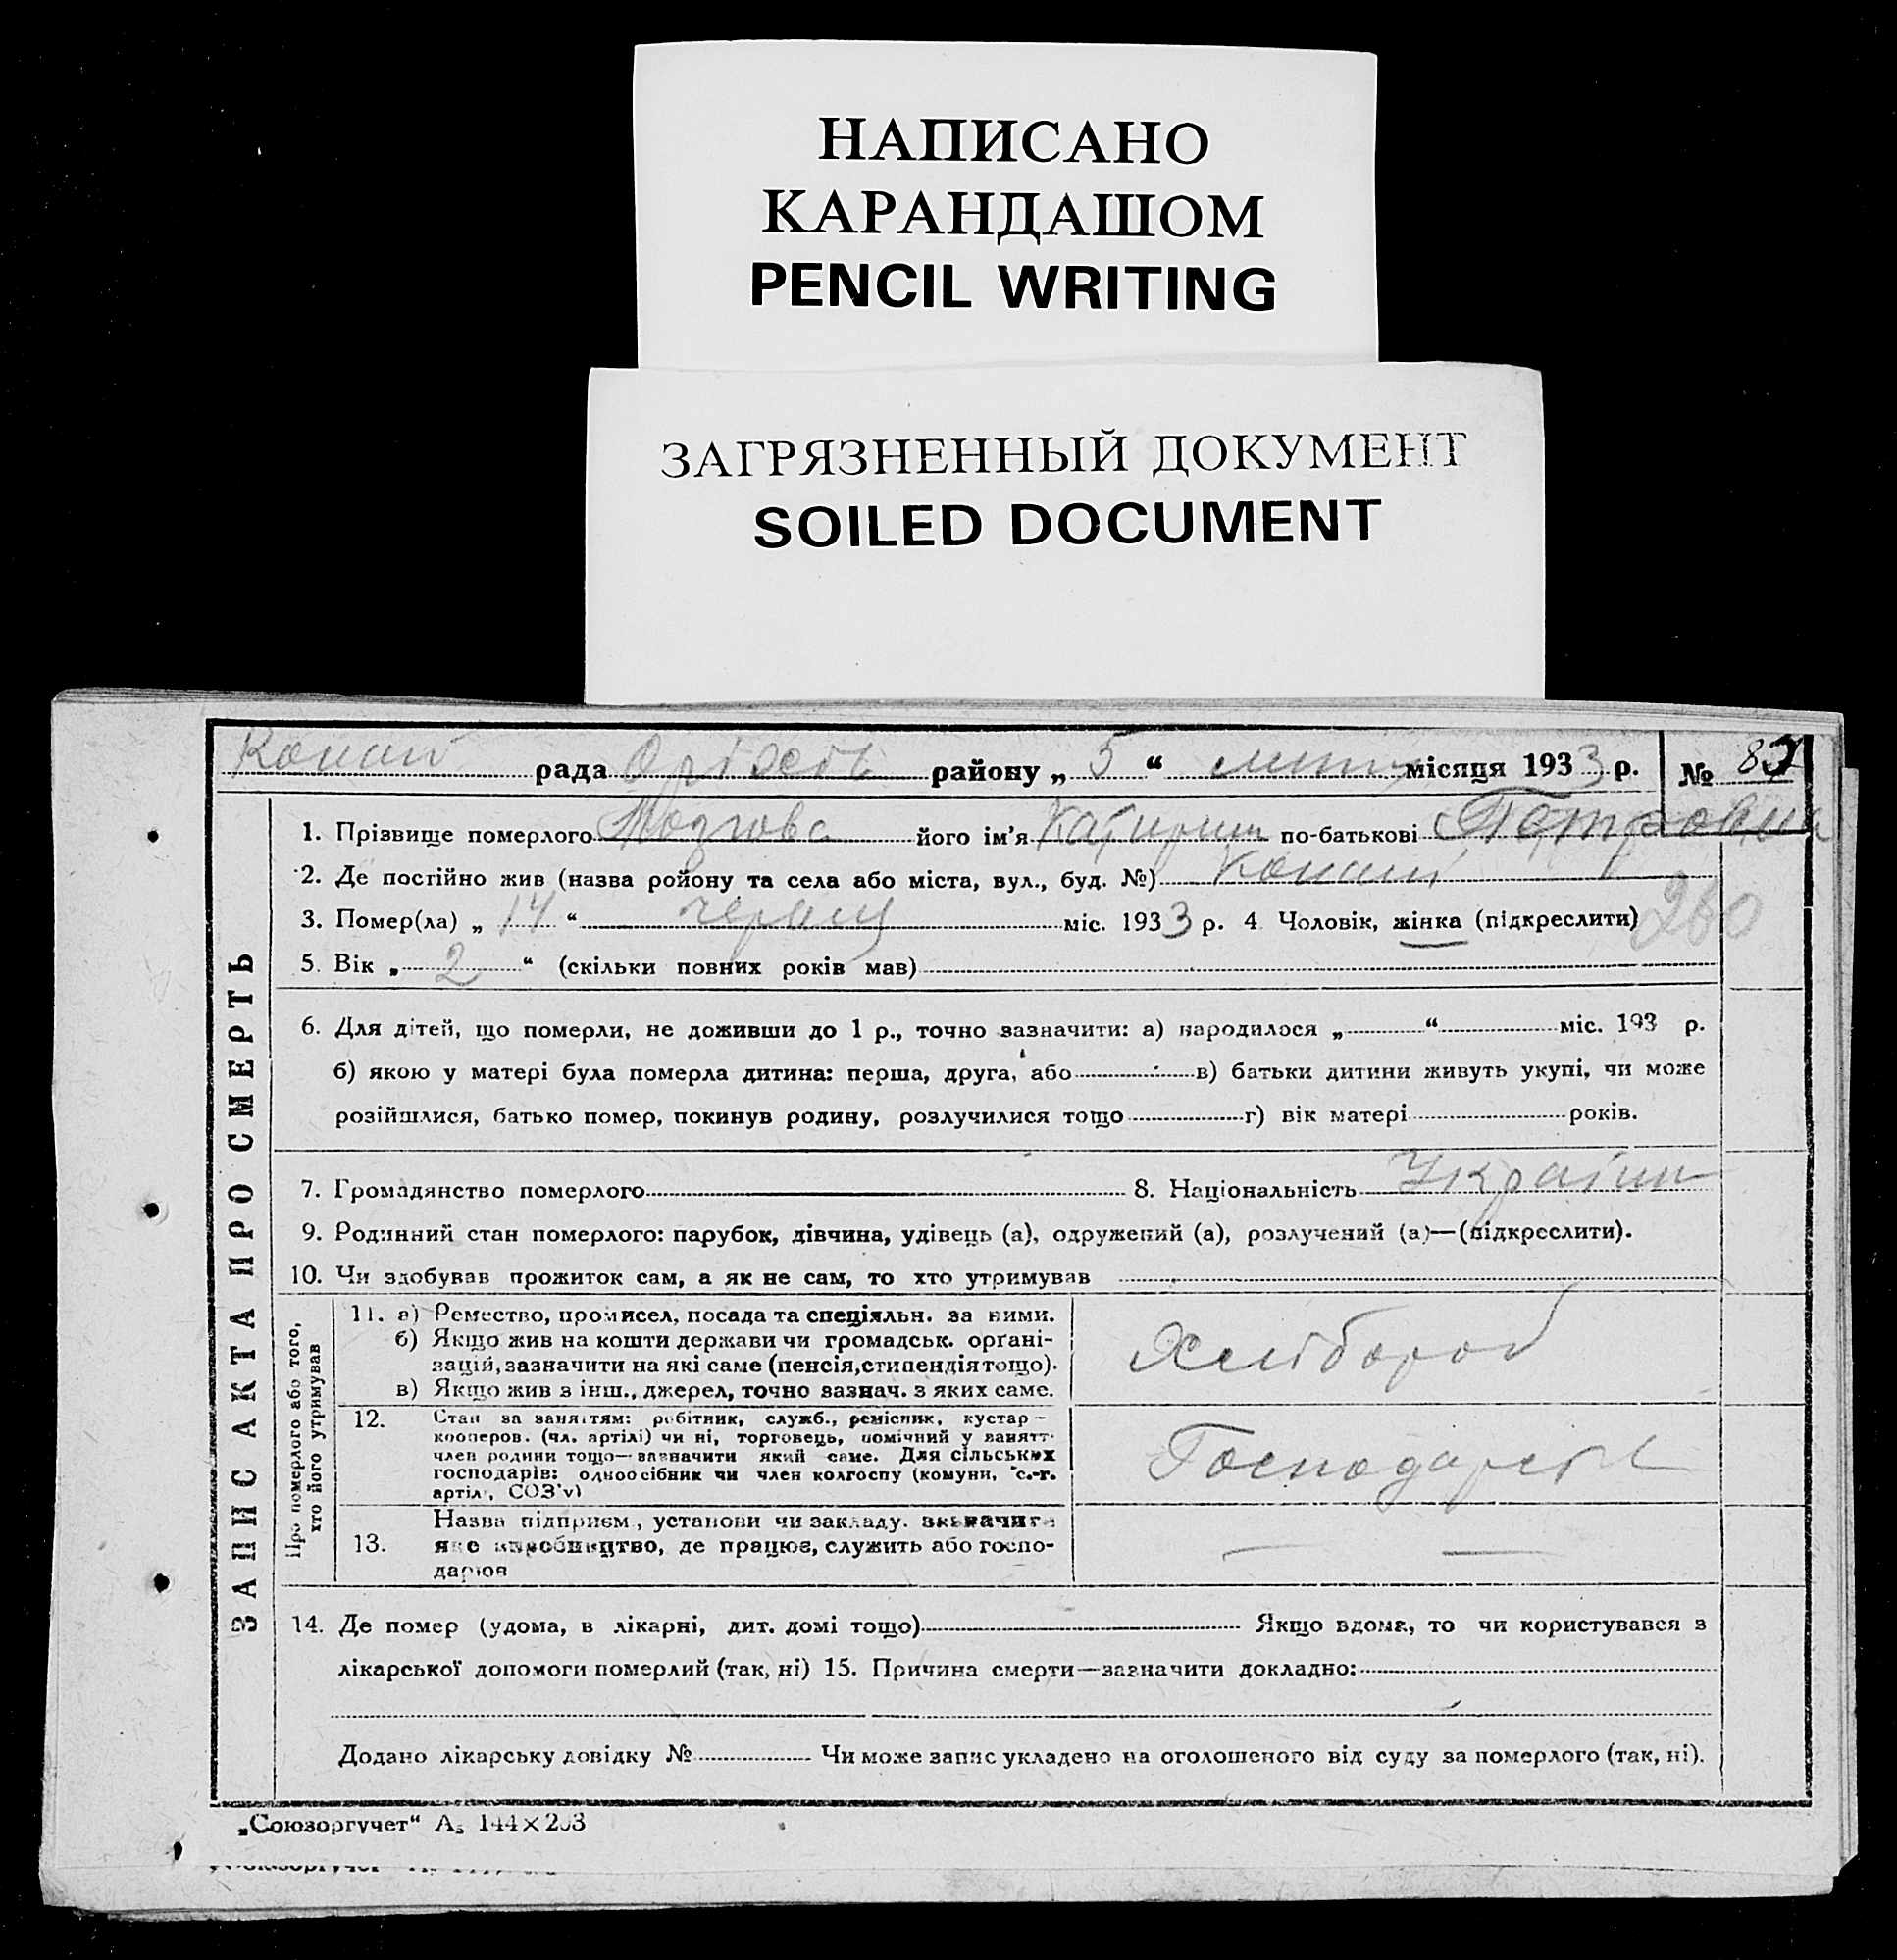 НАПИСАНО
КАРАНДАШОМ
PENCIL WRITING
ЗАГРЯЗНЕННЫЙ ДОКУМЕНТ
SOILED DOCUMENT
Копані рада Оріхоть району „ 5 “ місяця 1933 р. № 8
1. Прізвище померлого Мозгова його ім'я Катирин по-батькові Петровна
2. Де постійно жив (назва району та села або міста, вул., буд. №) Копані
3. Помер(ла) „ 14 “ червня міс. 1933 р. 4. Чоловік, жінка (підкреслити) 260
5. Вік „ 2 “ (скільки повних років мав)
6. Для дітей, що померли, не доживши до 1 р., точно зазначити: а) народилося „ “ міс. 193 р.
б) якою у матері була померла дитина: перша, друга, або в) батьки дитини живуть укупі, чи може
розійшлися, батько помер, покинув родину, розлучилися тощо г) вік матері років.
7. Громадянство померлого 8. Національність Україин
9. Родинний стан померлого: парубок, дівчина, удівець (а), одружений (а), розлучений (а)—(підкреслити).
10. Чи здобував прожиток сам, а як не сам, то хто утримував
11. а) Ремество, промисел, посада та спеціяльн. за ними.
б) Якщо жив на кошти держави чи громадськ. орґані-
зацій, зазначити на які саме (пенсія, стипендія тощо).
в) Якщо жив з інш., джерел, точно зазнач. з яких саме.
Хлібороб
12. Стан за заняттям: робітник, служб., ремісник, кустар –
кооперов. (чл. артілі) чи ні, торговець, помічний у занятт.
член родини тощо—зазначити який саме. Для сільських
господарів: одноосібник чи член колгоспу (комуни, с.-г.
артіл., СОЗ'у)
13. Назва підприєм., установи чи закладу. зазначити
яке виробництво, де працює, служить або госпо-
дарює
— —
14. Де помер (удома, в лікарні, дит. домі тощо) Якщо вдома, то чи користувався з
лікарської допомоги померлий (так, ні) 15. Причина смерти—зазначити докладно:
Додано лікарську довідку № Чи може запис укладено на оголошеного від суду за померлого (так, ні).
ЗАПИС АКТА ПРО СМЕРТЬ
Про померлого або того,
хто його утримував
„Союзоргучет“ А₅ 144×203